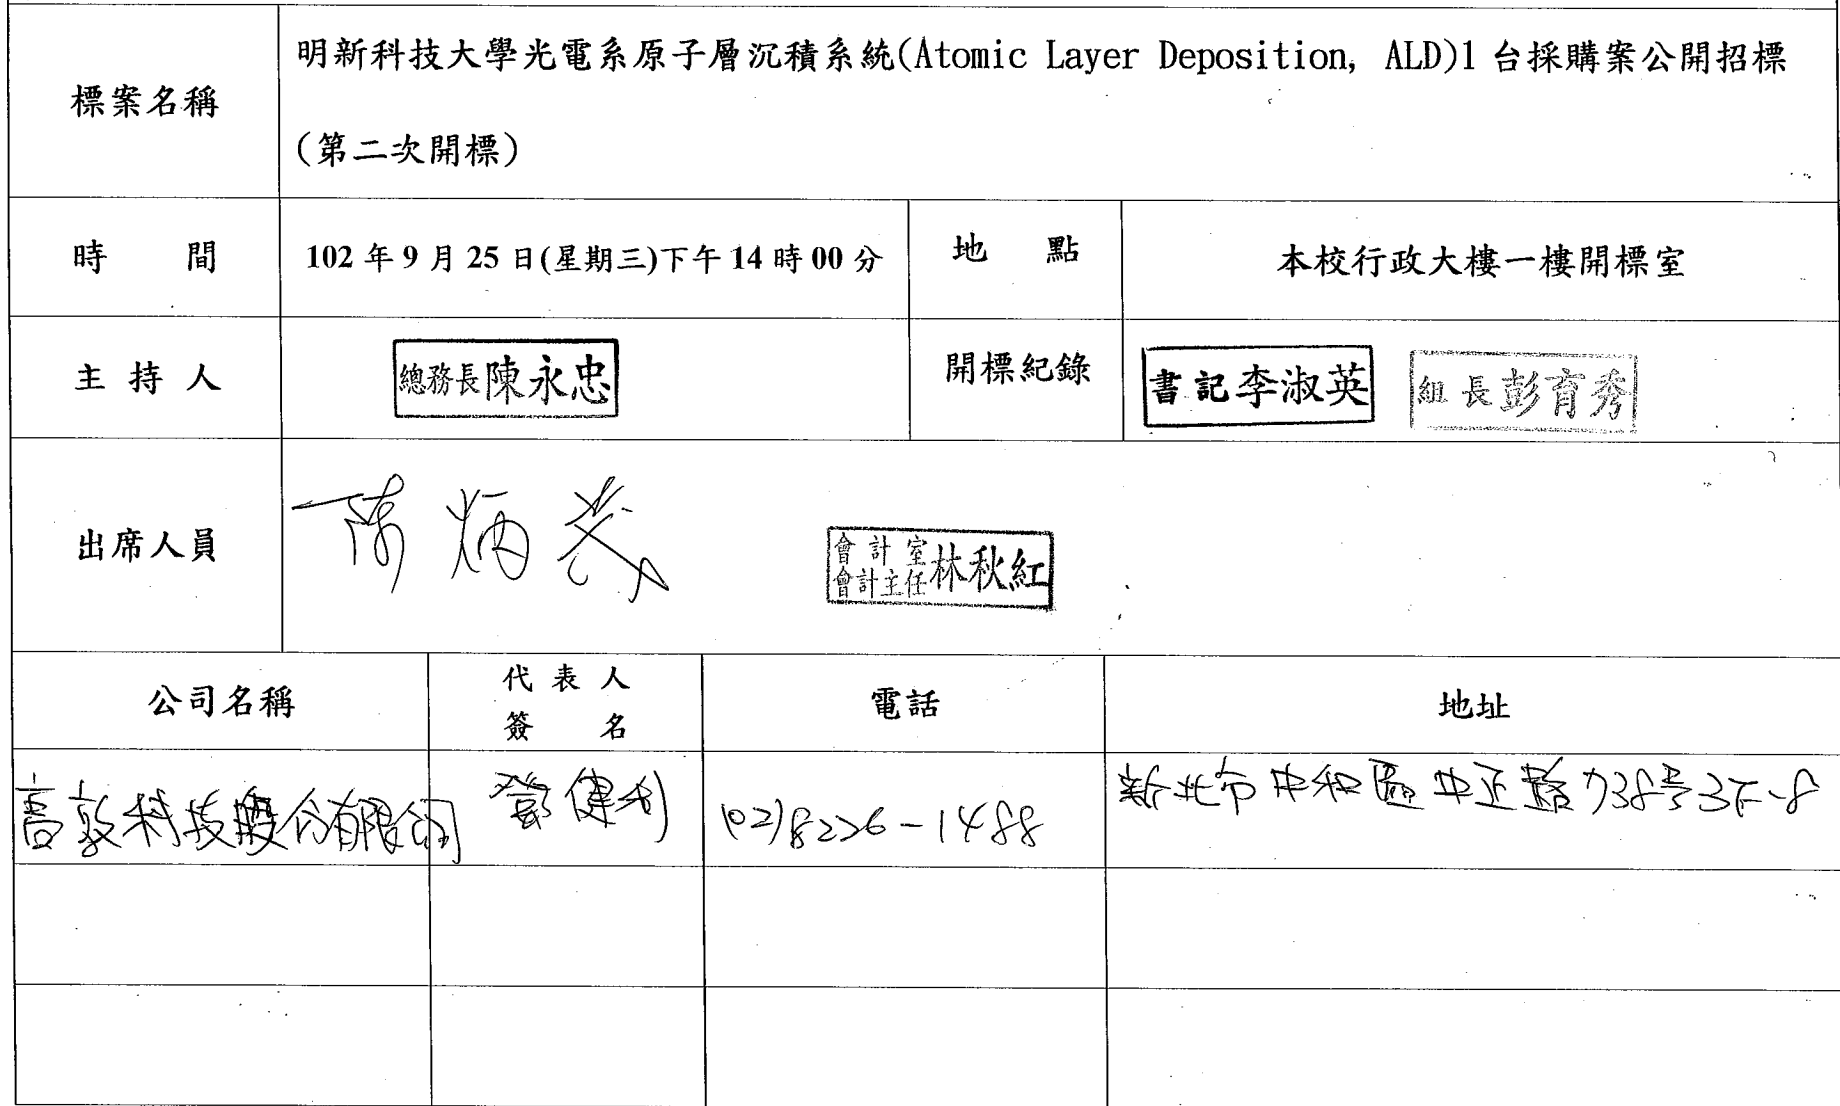 標案名稱
明新科技大學光電系原子層沉積系統(Atomic Layer Deposition, ALD)1 台採購案公開招標
(第二次開標)
時 間
102 年 9 月 25 日(星期三)下午 14 時 00 分
地 點
本校行政大樓一樓開標室
主 持 人
總務長陳永忠
開標紀錄
書記李淑英
組長彭育秀
出席人員
陳炳茂
會計室
會計主任林秋紅
公司名稱
代 表 人
簽 名
電話
地址
高敦科技股份有限公司
鄧健利
(02)8226-1488
新北市中和區中正路738号3F-8